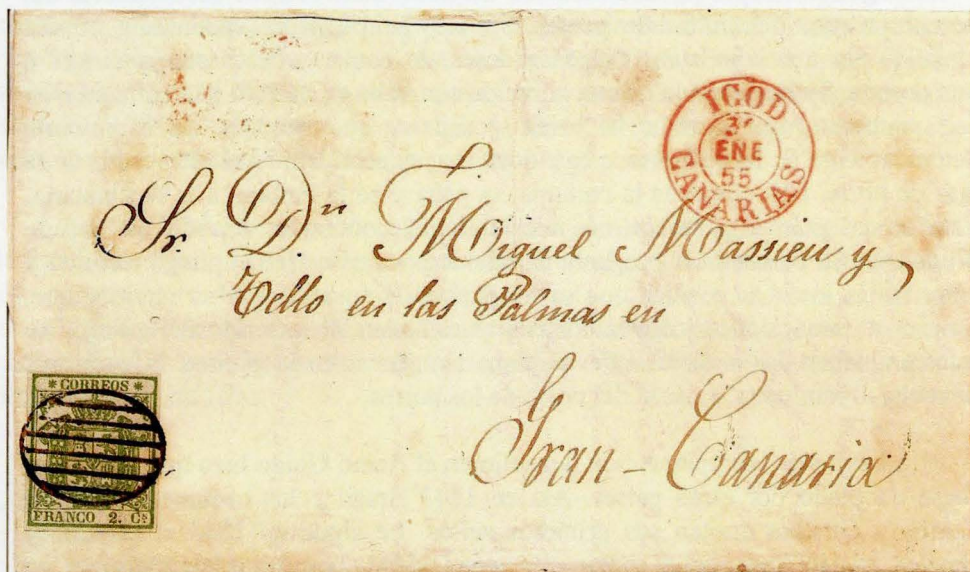 ICOD
ENE
55
CANARIAS
Sr. Dn. Miguel Massieu y
Tello en las Palmas en
Gran-Canaria
* CORREOS *
FRANCO 2. Cs